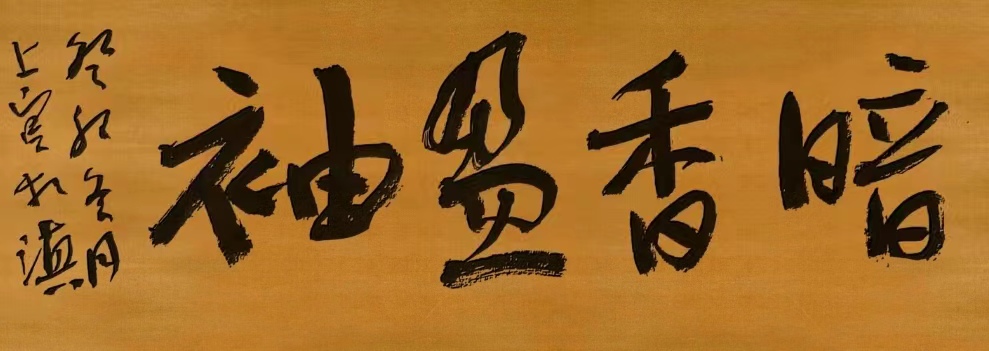 暗香盈袖
癸卯冬月
上官於滇